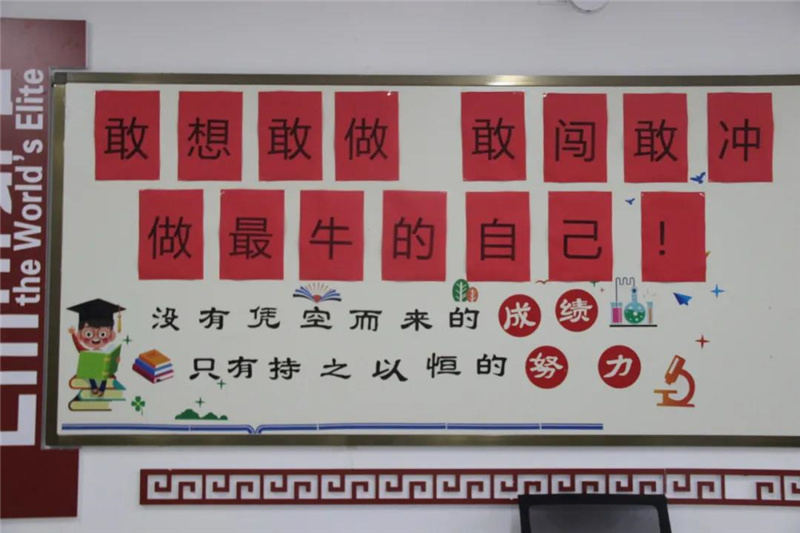 敢想敢做 敢闯敢冲
做最牛的自己！
没有凭空而来的成绩
只有持之以恒的努力
the World's Elite